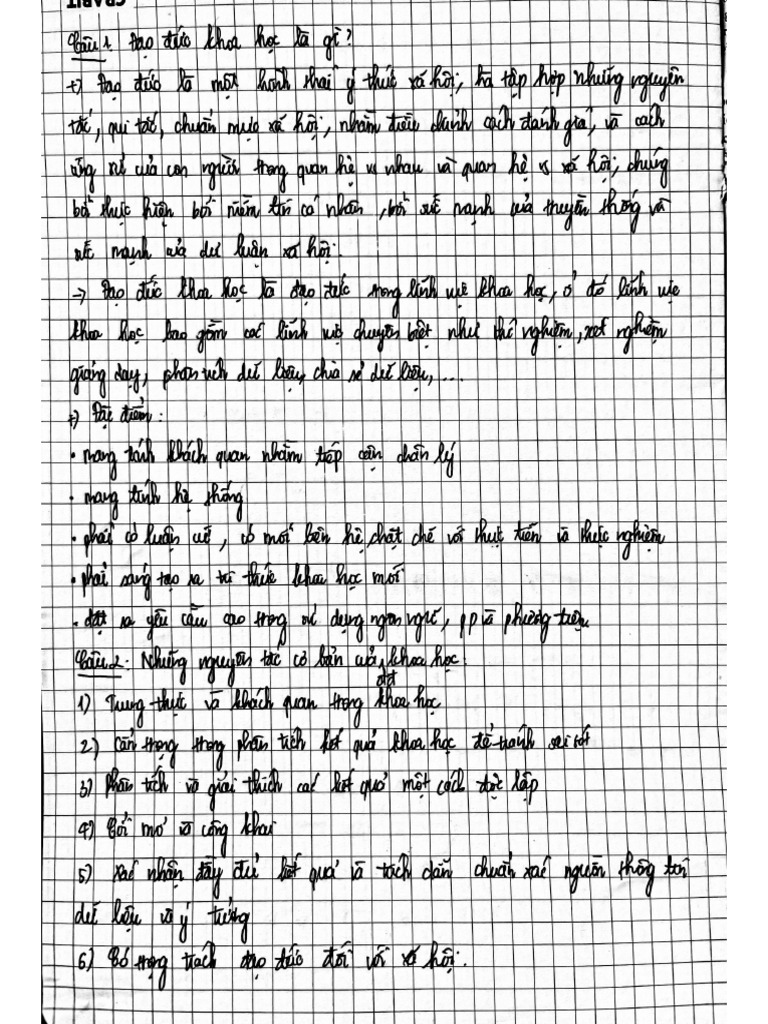 GRABIT
Câu 1: Đạo đức khoa học là gì?
+) Đạo đức là một hình thái ý thức xã hội, là tập hợp những nguyên
tắc, qui tắc, chuẩn mực xã hội, nhằm điều chỉnh cách đánh giá, và cách
ứng xử của con người trong quan hệ vs nhau và quan hệ vs xã hội, chúng
bởi thực hiện bởi niềm tin cá nhân, bởi sức mạnh của truyền thống và
sức mạnh của dư luận xã hội.
-> Đạo đức khoa học là đạo đức trong lĩnh vực khoa học, ở đó lĩnh vực
khoa học bao gồm các lĩnh vực chuyên biệt như thí nghiệm, xét nghiệm
giảng dạy, phân tích dữ liệu, chia sẻ dữ liệu, ...
+) Đặc điểm:
• mang tính khách quan nhằm tiếp cận chân lý
• mang tính hệ thống
• phải có luận cứ, có mối liên hệ chặt chẽ với thực tiễn và thực nghiệm
• phải sáng tạo ra tri thức khoa học mới
• đặt ra yêu cầu cao trong sử dụng ngôn ngữ, pp và phương tiện
Câu 2: Những nguyên tắc cơ bản của đđ khoa học:
1) Trung thực và khách quan trong khoa học
2) Cẩn trọng trong phân tích kết quả khoa học để tránh sai sót
3) Phân tích và giải thích các kết quả một cách độc lập
4) Cởi mở và công khai
5) Xác nhận đầy đủ kết quả và trích dẫn chuẩn xác nguồn thông tin
dữ liệu và ý tưởng
6) Có trọng trách đạo đức đối với xã hội.